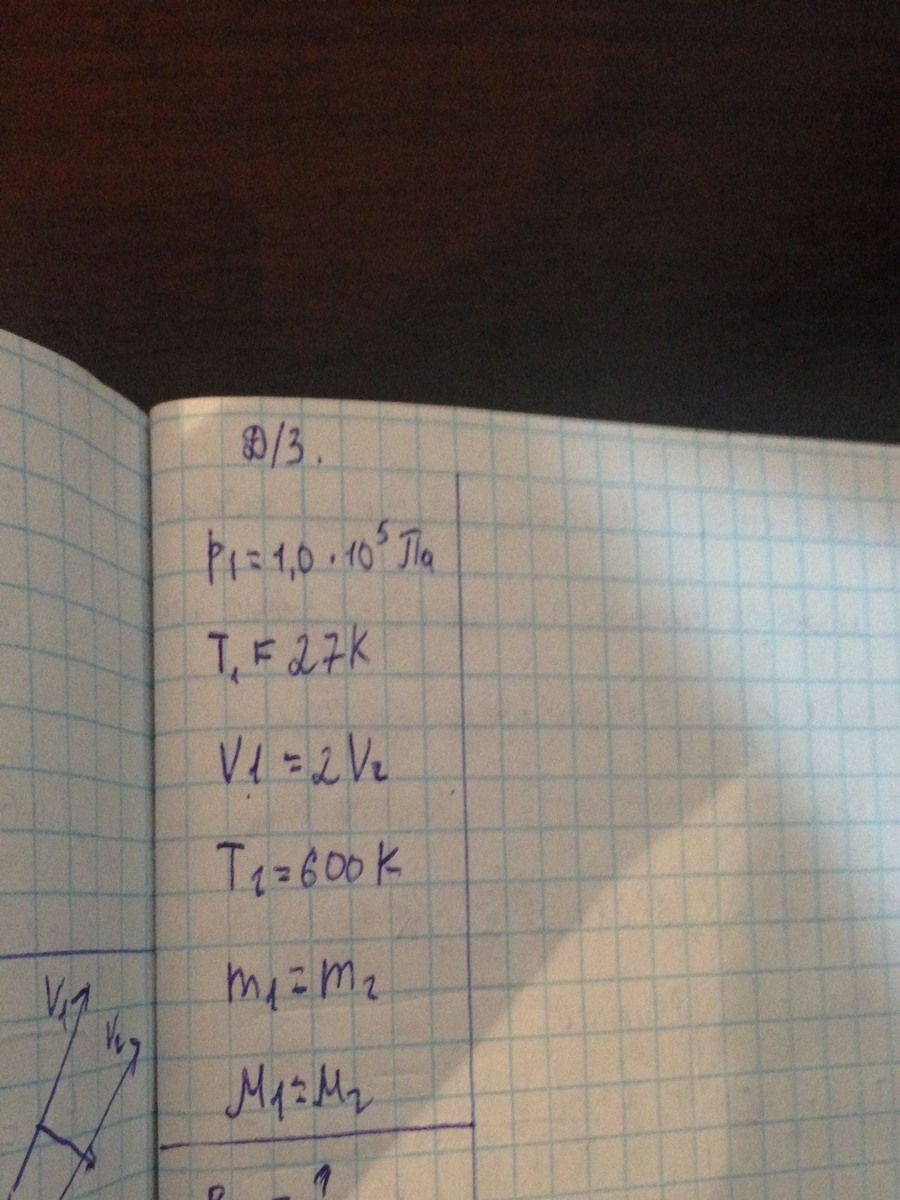 Д/З.
p₁ = 1,0 · 10⁵ Па
T₁ = 27К
V1 = 2 V₂
T₂ = 600 К
m₁ = m₂
M₁ = M₂
V₁
V₂
= ?